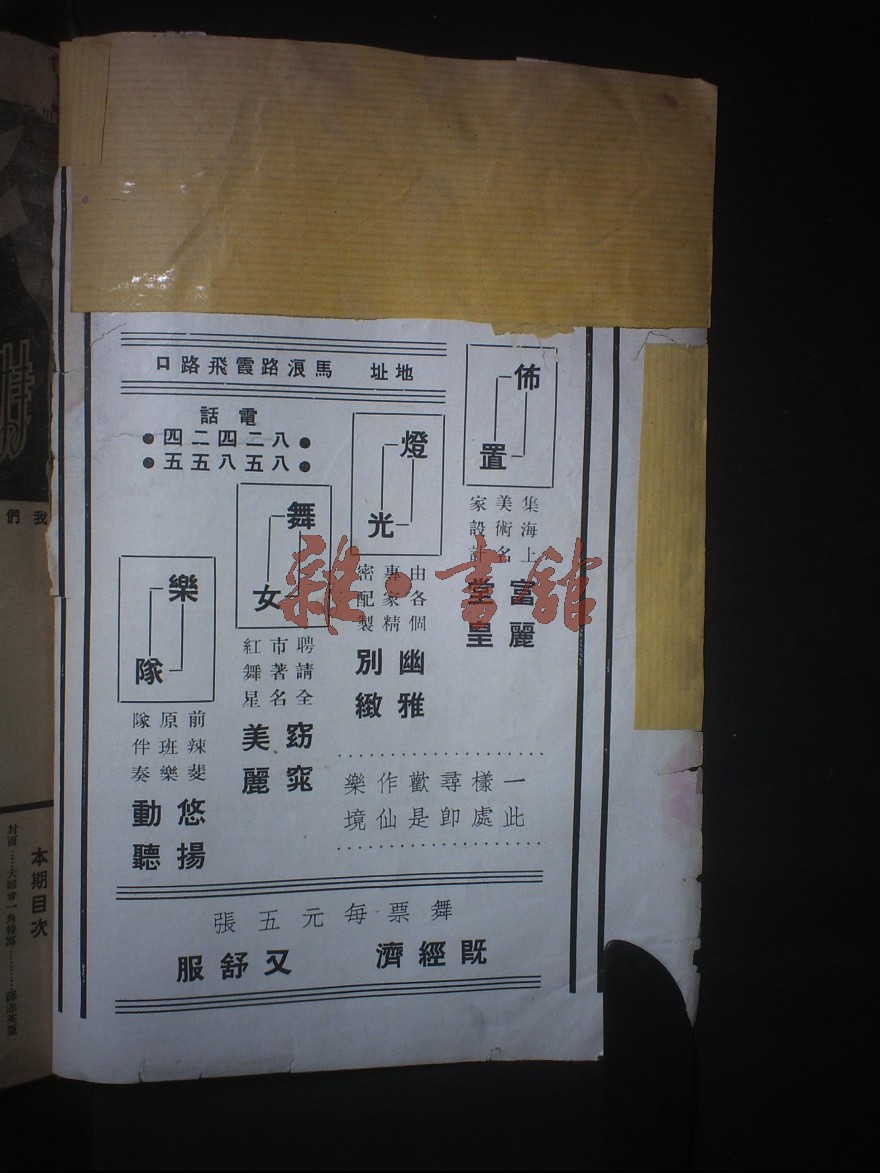 地址 馬浪路霞飛路口
電話
●八二四二四●
●八五八五五●
佈置
集海上
美術名
家設計
富麗
堂皇
燈光
由各個
專家精
密配製
幽雅
別緻
舞女
聘請全
市著名
紅舞星
窈窕
美麗
樂隊
前辣斐
原班樂
隊伴奏
悠揚
動聽
一樣尋歡作樂
此處即是仙境
舞票每元五張
既經濟 又舒服
雜·書館
我們
本期目次
封面……大都會一角特寫